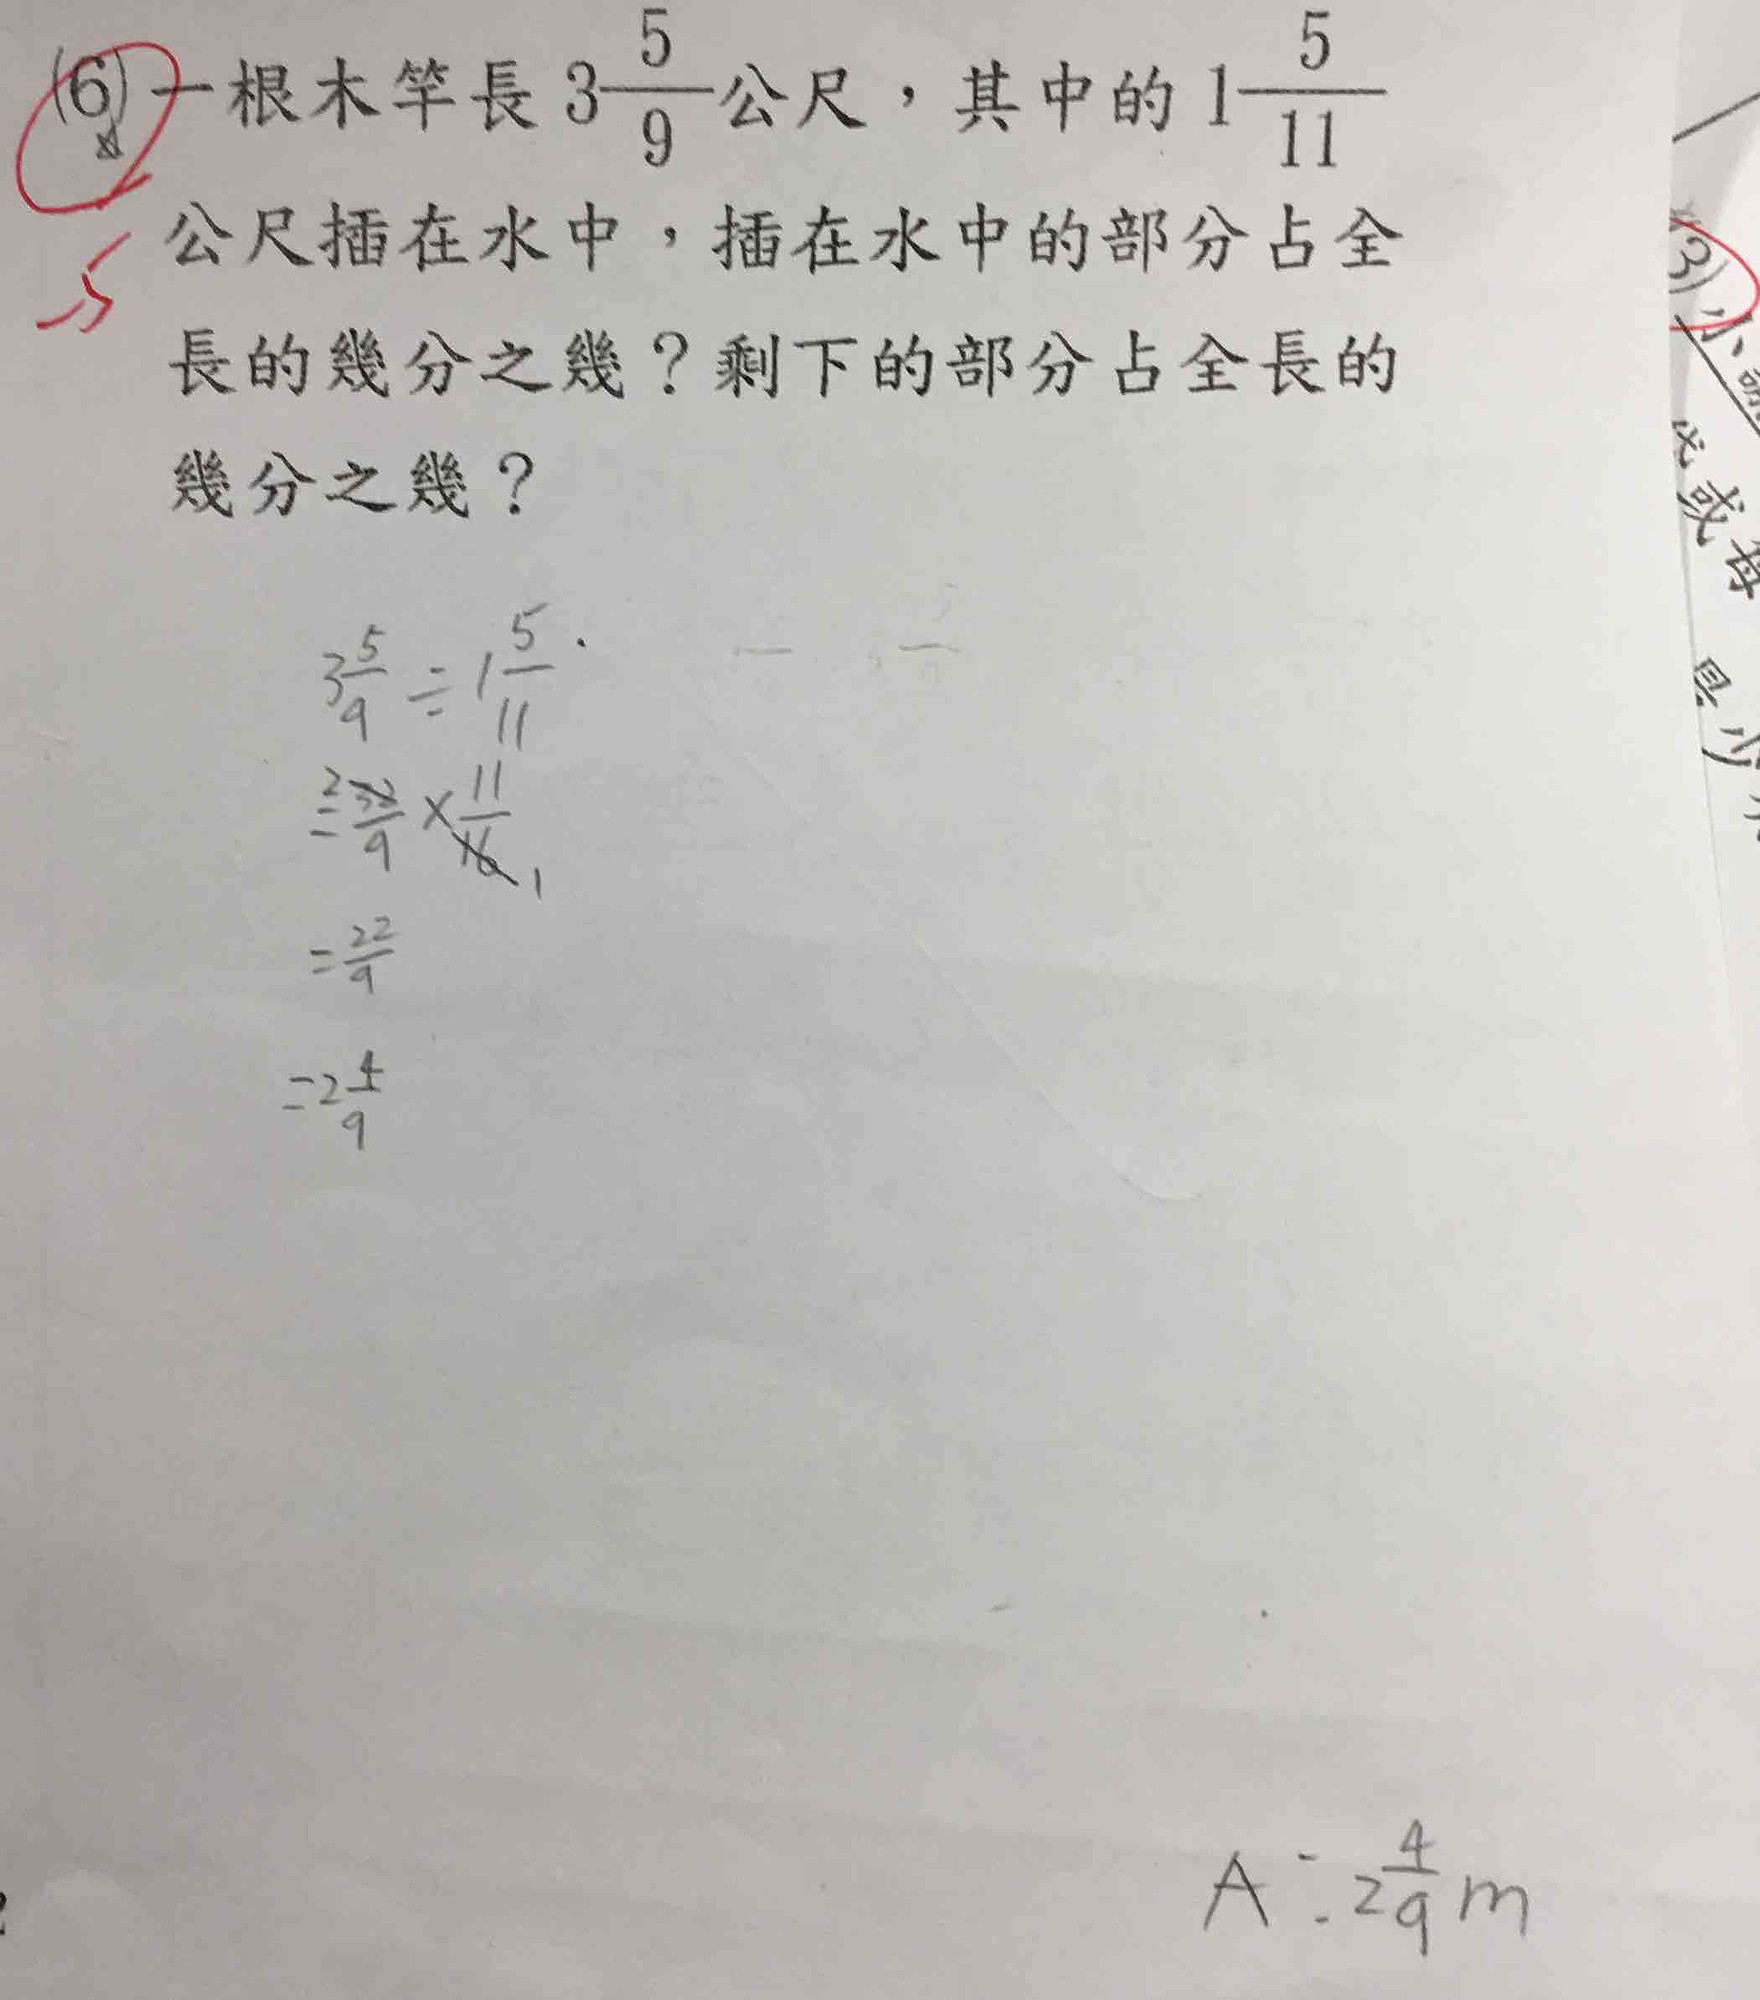 (6) 一根木竿長 3 5/9 公尺，其中的 1 5/11
公尺插在水中，插在水中的部分占全
長的幾分之幾？剩下的部分占全長的
幾分之幾？
-5
3 5/9 ÷ 1 5/11
= 32/9 × 11/16
2
1
= 22/9
= 2 4/9
A: 2 4/9 m
(3) 小
或每